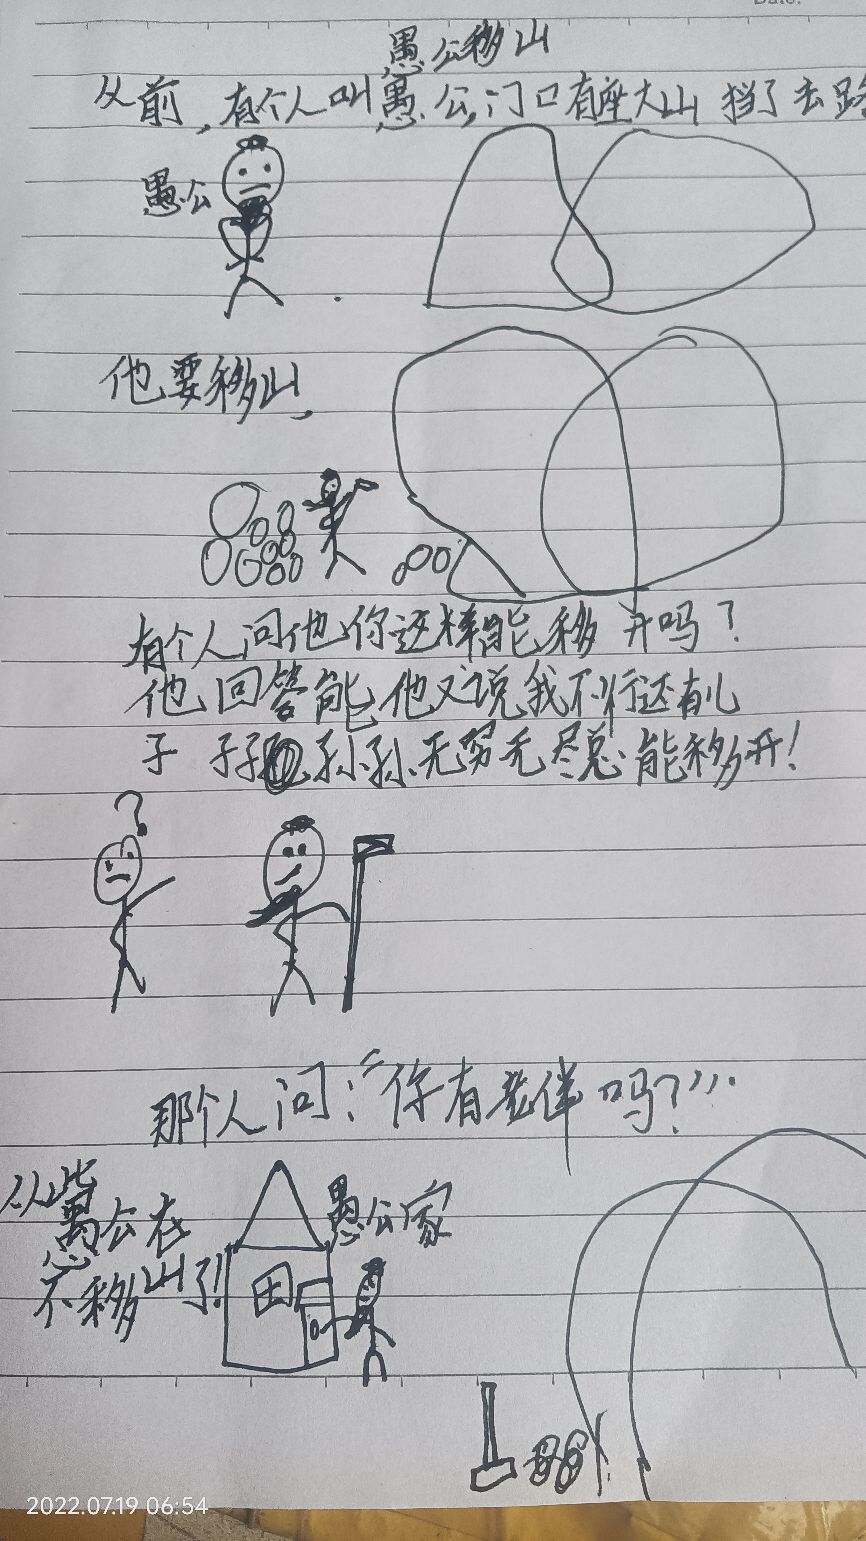 Date:
愚公移山
从前,有个人叫愚公,门口有座大山挡了去路
愚公
他要移山,
有个人问他你这样能移开吗?
他回答能,他又说我不行还有儿
子 子子孙孙无穷无尽总能移开!
?
那个人问:“你有老伴吗?”...
从此
愚公在
不移山了!
愚公家
2022.07.19 06:54